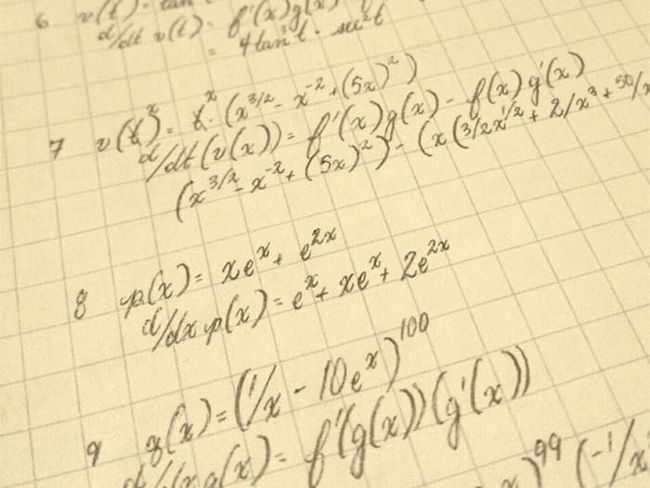 6 v(t) = tan
d/dt v(t) = f'(x)g(x)
= 4tan³t · sec²t
7 v(x) = x · (x^3/2 - x^-2 + (5x)^2)
d/dt(v(x)) = f'(x)g(x) - f(x)g'(x)
(x^3/2 - x^-2 + (5x)^2) - (x(3/2x^1/2 + 2/x^3 + 50/x
8 p(x) = xe^x + e^2x
d/dx p(x) = e^x + xe^x + 2e^2x
9 g(x) = (1/x - 10e^x)^100
d/dx g(x) = f'(g(x))(g'(x))
x)^99 (-1/x